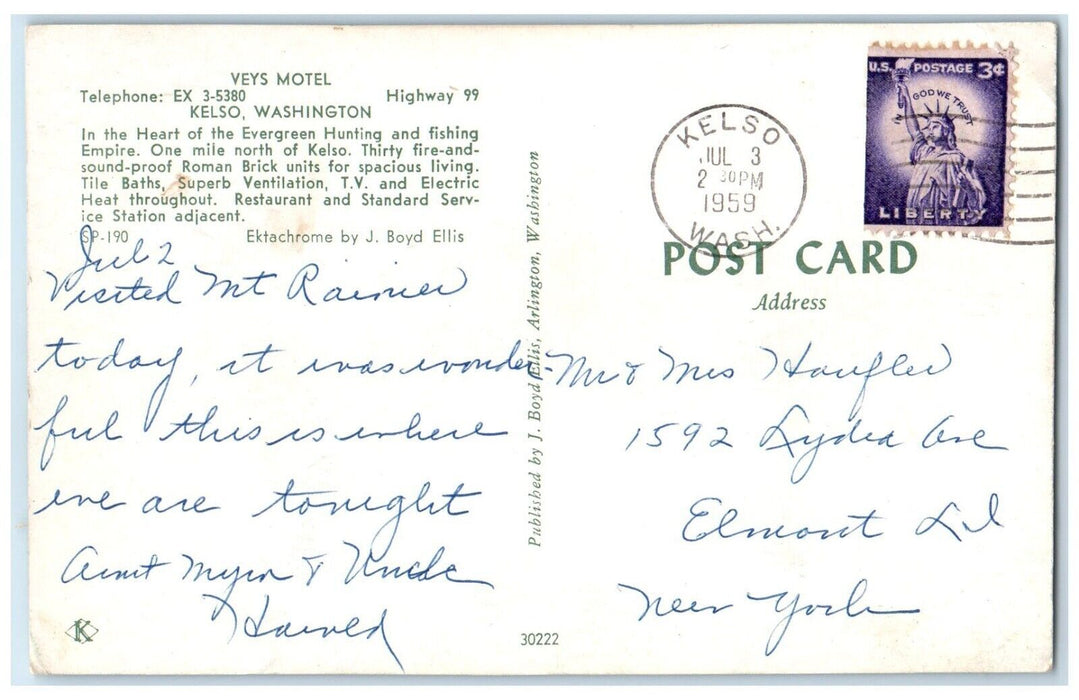 VEYS MOTEL
Telephone: EX 3-5380 Highway 99
KELSO, WASHINGTON
In the Heart of the Evergreen Hunting and fishing
Empire. One mile north of Kelso. Thirty fire-and-
sound-proof Roman Brick units for spacious living.
Tile Baths, Superb Ventilation, T.V. and Electric
Heat throughout. Restaurant and Standard Serv-
ice Station adjacent.
SP-190 Ektachrome by J. Boyd Ellis
Jul 2
Visited Mt Rainier
today, it was wonder-
ful this is where
we are tonight
Aunt Myra & Uncle
Harold
K
Published by J. Boyd Ellis, Arlington, Washington
30222
KELSO
JUL 3
2 30 PM
1959
WASH.
U.S. POSTAGE 3¢
IN GOD WE TRUST
LIBERTY
POST CARD
Address
Mr & Mrs
1592 Lydia Ave
Elmont L I
New York